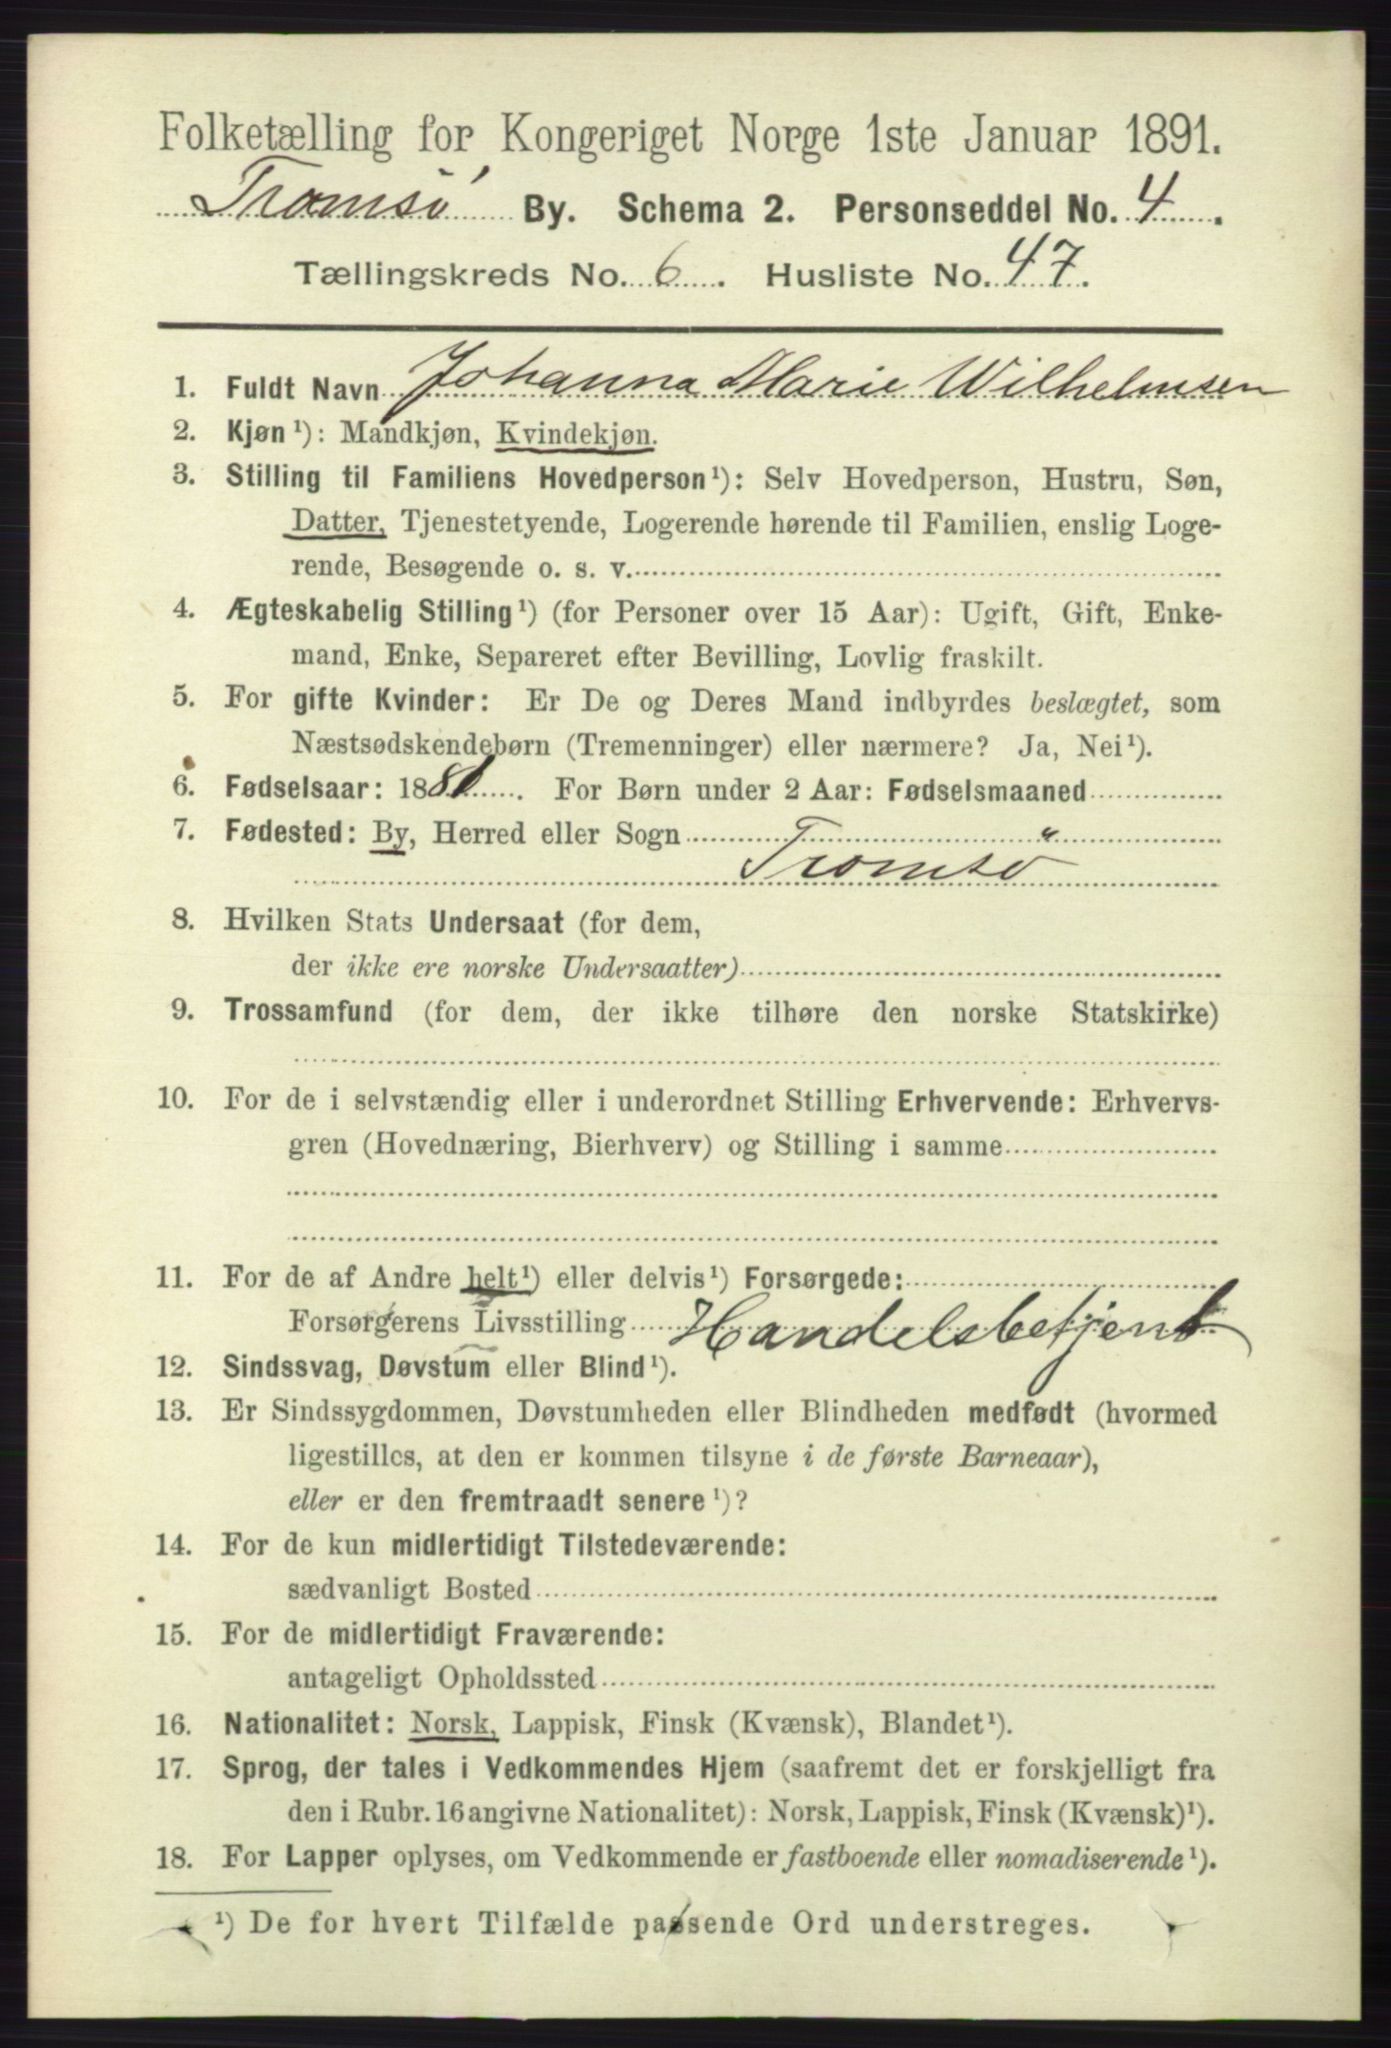 Folketælling for Kongeriget Norge 1ste Januar 1891.
Tromsö By. Schema 2. Personseddel No. 4.
Tællingskreds No. 6. Husliste No. 47.
1. Fuldt Navn Johanna Marie Wilhelmsen
2. Kjøn¹): Mandkjøn, Kvindekjøn.
3. Stilling til Familiens Hovedperson¹): Selv Hovedperson, Hustru, Søn,
Datter, Tjenestetyende, Logerende hørende til Familien, enslig Loge-
rende, Besøgende o. s. v.
4. Ægteskabelig Stilling¹) (for Personer over 15 Aar): Ugift, Gift, Enke-
mand, Enke, Separeret efter Bevilling, Lovlig fraskilt.
5. For gifte Kvinder: Er De og Deres Mand indbyrdes beslægtet, som
Næstsødskendebørn (Tremenninger) eller nærmere? Ja, Nei¹).
6. Fødselsaar: 1881. For Børn under 2 Aar: Fødselsmaaned
7. Fødested: By, Herred eller Sogn
Tromsö
8. Hvilken Stats Undersaat (for dem,
der ikke ere norske Undersaatter)
9. Trossamfund (for dem, der ikke tilhøre den norske Statskirke)
10. For de i selvstændig eller i underordnet Stilling Erhvervende: Erhvervs-
gren (Hovednæring, Bierhverv) og Stilling i samme
11. For de af Andre helt¹) eller delvis¹) Forsørgede:
Forsørgerens Livsstilling Handelsbetjent
12. Sindssvag, Døvstum eller Blind¹).
13. Er Sindssygdommen, Døvstumheden eller Blindheden medfødt (hvormed
ligestilles, at den er kommen tilsyne i de første Barneaar),
eller er den fremtraadt senere¹)?
14. For de kun midlertidigt Tilstedeværende:
sædvanligt Bosted
15. For de midlertidigt Fraværende:
antageligt Opholdssted
16. Nationalitet: Norsk, Lappisk, Finsk (Kvænsk), Blandet¹).
17. Sprog, der tales i Vedkommendes Hjem (saafremt det er forskjelligt fra
den i Rubr. 16 angivne Nationalitet): Norsk, Lappisk, Finsk (Kvænsk)¹).
18. For Lapper oplyses, om Vedkommende er fastboende eller nomadiserende¹).
¹) De for hvert Tilfælde passende Ord understreges.